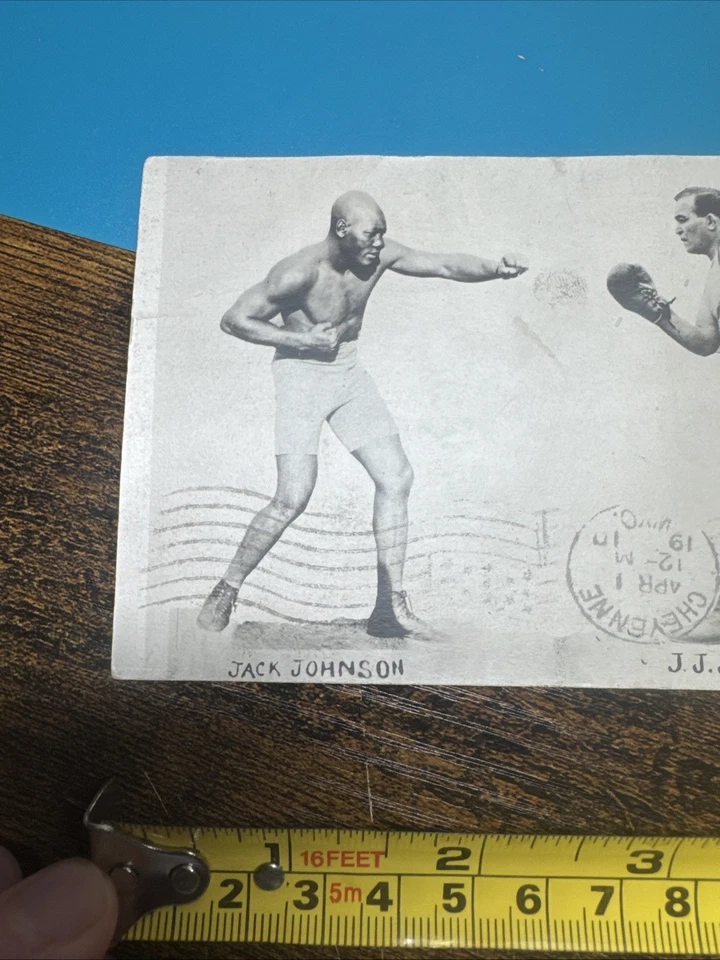 CHEYENNE
APR 1
12-M
19 10
WYO.
JACK JOHNSON
J.J.
1 16FEET 2 3
2 3 5m 4 5 6 7 8